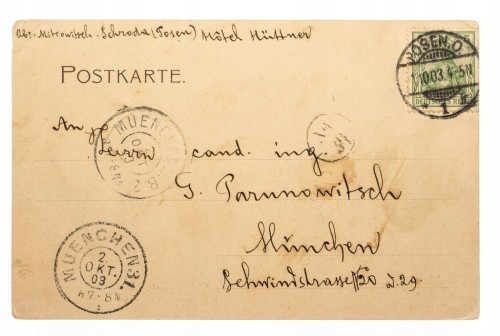 Abs. Mitrowitsch. Schroda (Posen) Hôtel Hüttner
POSTKARTE.
POSEN.O.
1.10.03.4-5N
* 1 *
DEUTSCHES REICH
5
An
MUENCHEN
2
OKT.
Herrn cand. ing.
G. Parunowitsch
München
Schwindstrasse
MUENCHEN 31.
2.
OKT.
03
7-8N